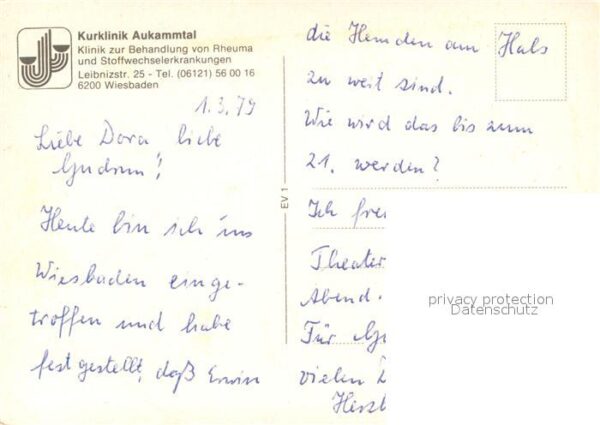 Kurklinik Aukammtal
Klinik zur Behandlung von Rheuma
und Stoffwechselerkrankungen
Leibnizstr. 25 - Tel. (06121) 56 00 16
6200 Wiesbaden
1.3.79
Liebe Dora, liebe
Gudrun!
Heute bin ich ins
Wiesbaden einge-
troffen und habe
festgestellt, daß Erwin
EV 1
die Hemden am Hals
zu weit sind.
Wie wird das bis zum
21. werden?
Ich
Theater
Abend.
Für
vielen
privacy protection
Datenschutz